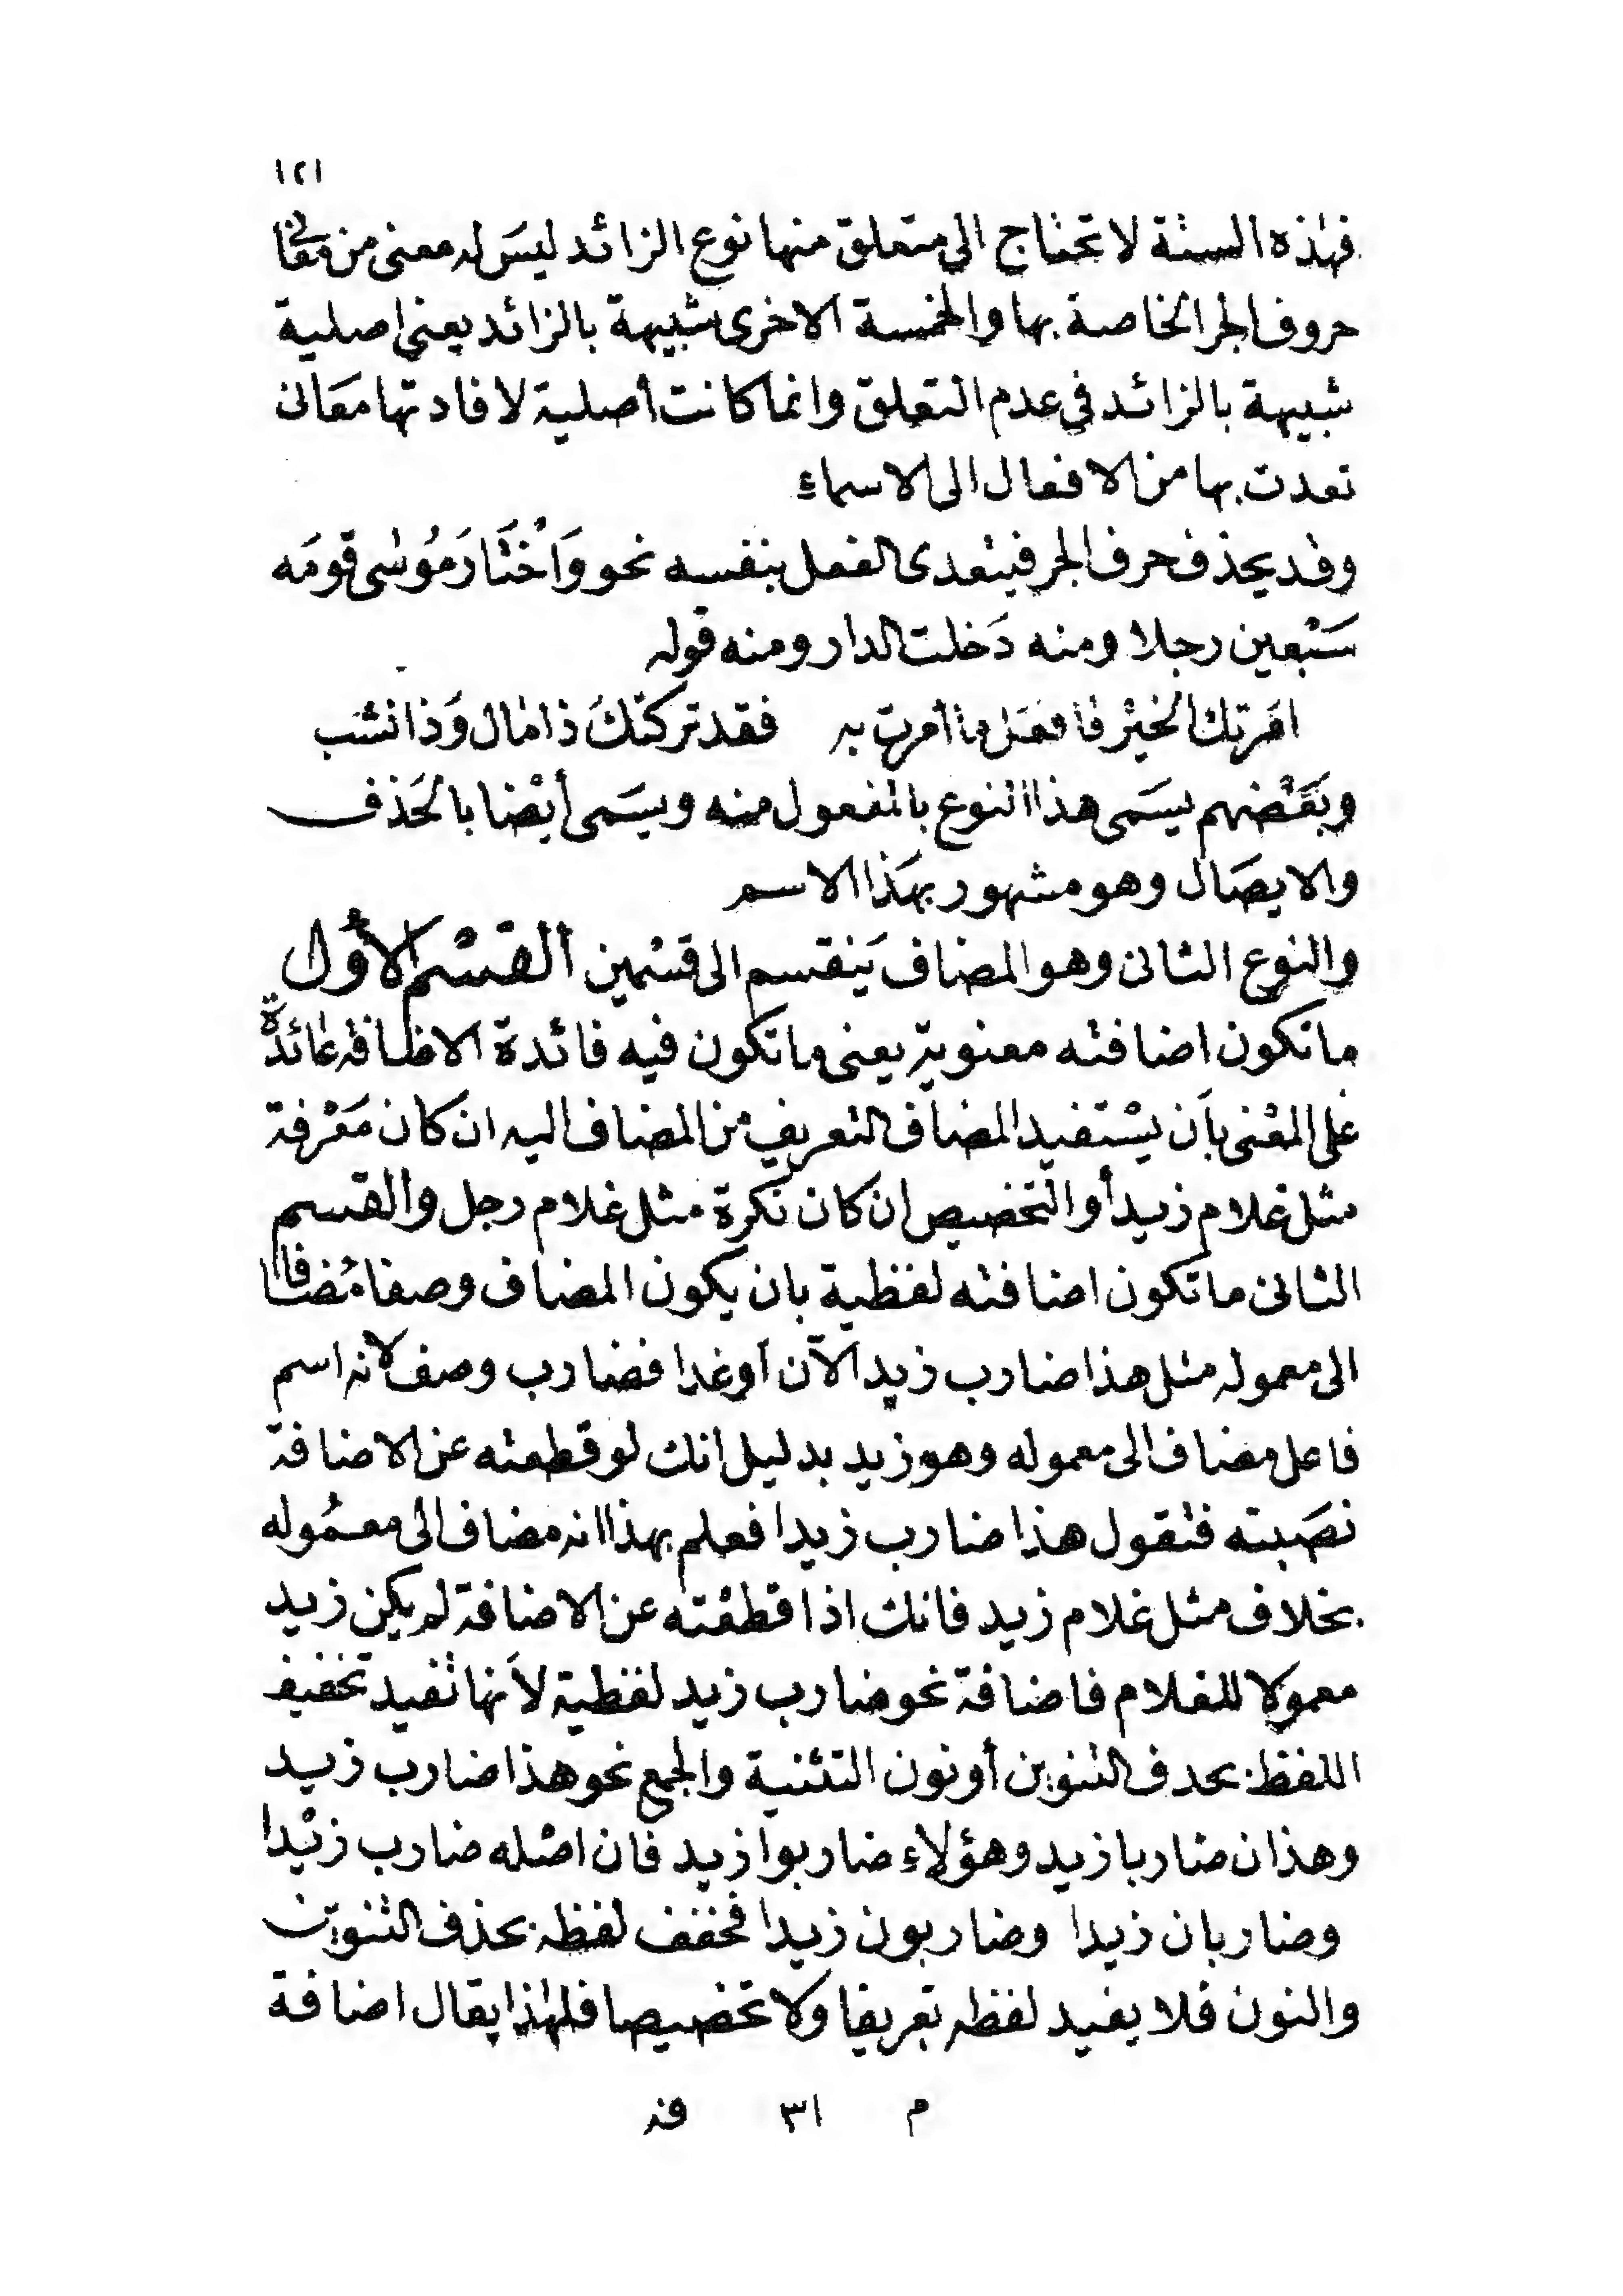 ١٢١
فهذه الستة لا تحتاج الى متعلق منها نوع الزائد ليسَ له معنى من معانى
حروف الجر الخاصة بها والخمسة الاخرى شبيهة بالزائد يعنى اصلية
شبيهة بالزائد فى عدم التعلق وانما كانت أصلية لافادتها معَانى
تعدت بها من الافعال الى الاسماء
وقد يحذف حرف الجر فيتعدى الفعل بنفسه نحو وَاخْتَارَ مُوسٰى قَومَه
سَبْعين رجلا ومنه دَخلت الدار ومنه قوله
امَرتك الخيْر فافعَل ما أمرت به فقد تركتكَ ذا مال وَذا نشب
وبَعْضهم يسَمى هذا النوع بالمفعول منه ويسَمى أيْضا بالحَذف
والايصَال وهو مشهور بهَذا الاسم
والنوع الثانى وهو المضاف يَنقسم الى قسْمين ألقسْم الأول
ما تكون اضافته معنوية يعنى ما تكون فيه فائدة الاضافة عائدة
على المعْنى بأن يسْتفيد المضاف التعريف من المضاف اليه ان كان مَعْرفة
مثل غلام زيد أو التخصيص ان كان نكرة مثل غلام رجل والقسم
الثانى ما تكون اضافته لفظية بان يكون المضاف وصفا مُضافا
الى معموله مثل هذا ضارب زيد الآن أو غدا فضارب وصف لانه اسم
فاعل مضاف الى معموله وهو زيد بدليل انك لو قطعته عن الاضافة
نصَبته فتقول هذا ضارب زيدا فعلم بهذا انه مضاف الى معمُوله
بخلاف مثل غلام زيد فانك اذا قطعْته عن الاضافة لم يكن زيد
معمولا للغلام فاضافة نحو ضارب زيد لفظية لأنها تفيد تخفيف
اللفظ بحدف التنوين أو نون التثنية والجمع نحو هذا ضارب زيد
وهذان ضاربا زيد وهؤلاء ضاربوا زيد فان اصْله ضارب زيْدا
وضاربان زيدا وضاربون زيدا فخفف لفظه بحذف التنوين
والنون فلا يفيد لفظه تعريفا ولا تخصيصا فلهٰذا يقال اضافة
م ٣١ فذ